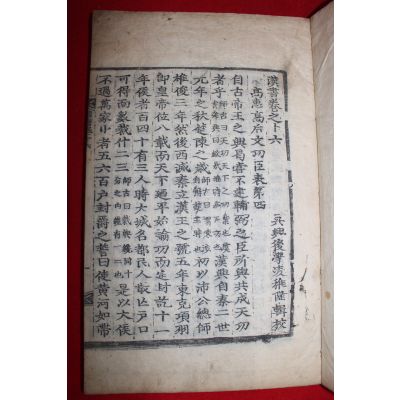 漢書卷之十六
吳興後學凌稚隆輯校
高惠高后文功臣表第四
自古帝王之興曷嘗不建輔弼之臣所與共成天功
者乎 漢興自秦二世
元年之秋楚陳之歲 初以沛公總帥
雄俊三年然後西滅秦立漢王之號五年東克項羽
即皇帝位八載而天下乃平始論功而定封訖十一
年侯者百四十有三人時大城名都民人散亡戶口
可得而數裁什二三 是以大侯
不過萬家小者五六百戶封爵之誓曰使黃河如帶